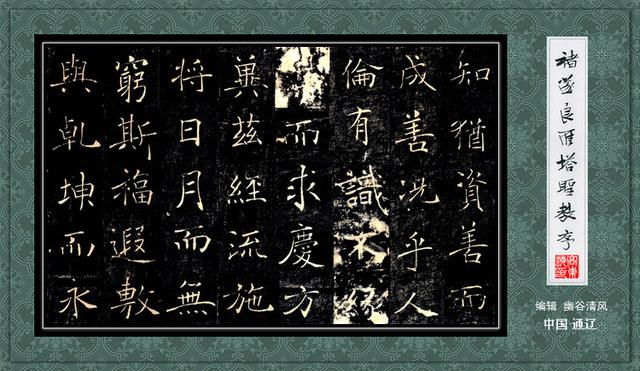 知猶資善而
成善況乎人
倫有識不緣
而求慶方
兾茲經流施
將日月而無
窮斯福遐敷
與乹坤而永
褚遂良雁塔聖教序
编辑 幽谷清风
中国·通辽